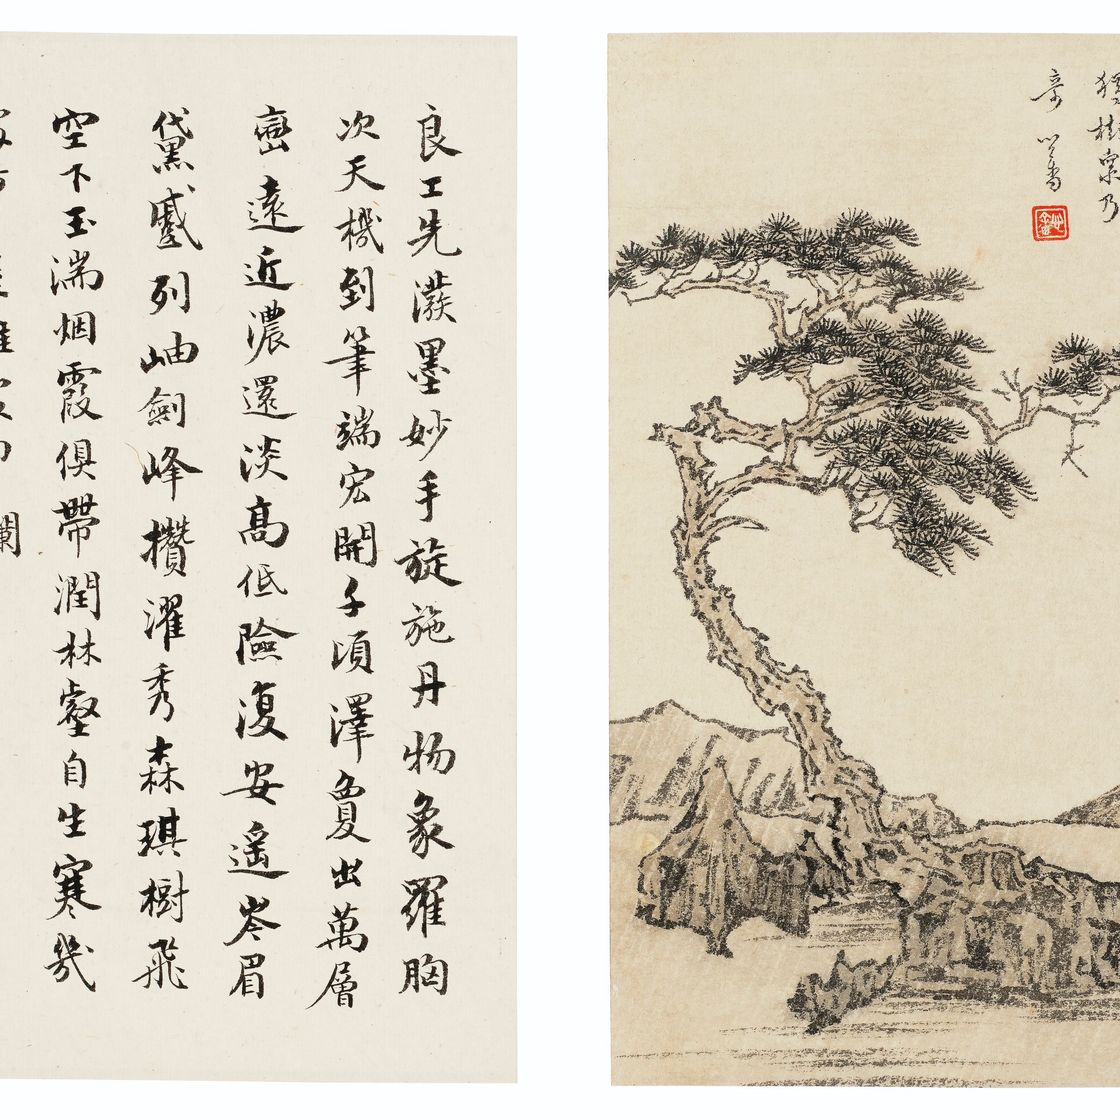 心畬
良工先潑墨妙手旋施丹物象羅胸
次天機到筆端宏開千頃澤夐出萬層
巒遠近濃還淡高低險復安遙岑眉
黛蹙列岫劍峰攢濯秀森琪樹飛
空下玉湍烟霞俱帶潤林壑自生寒幾